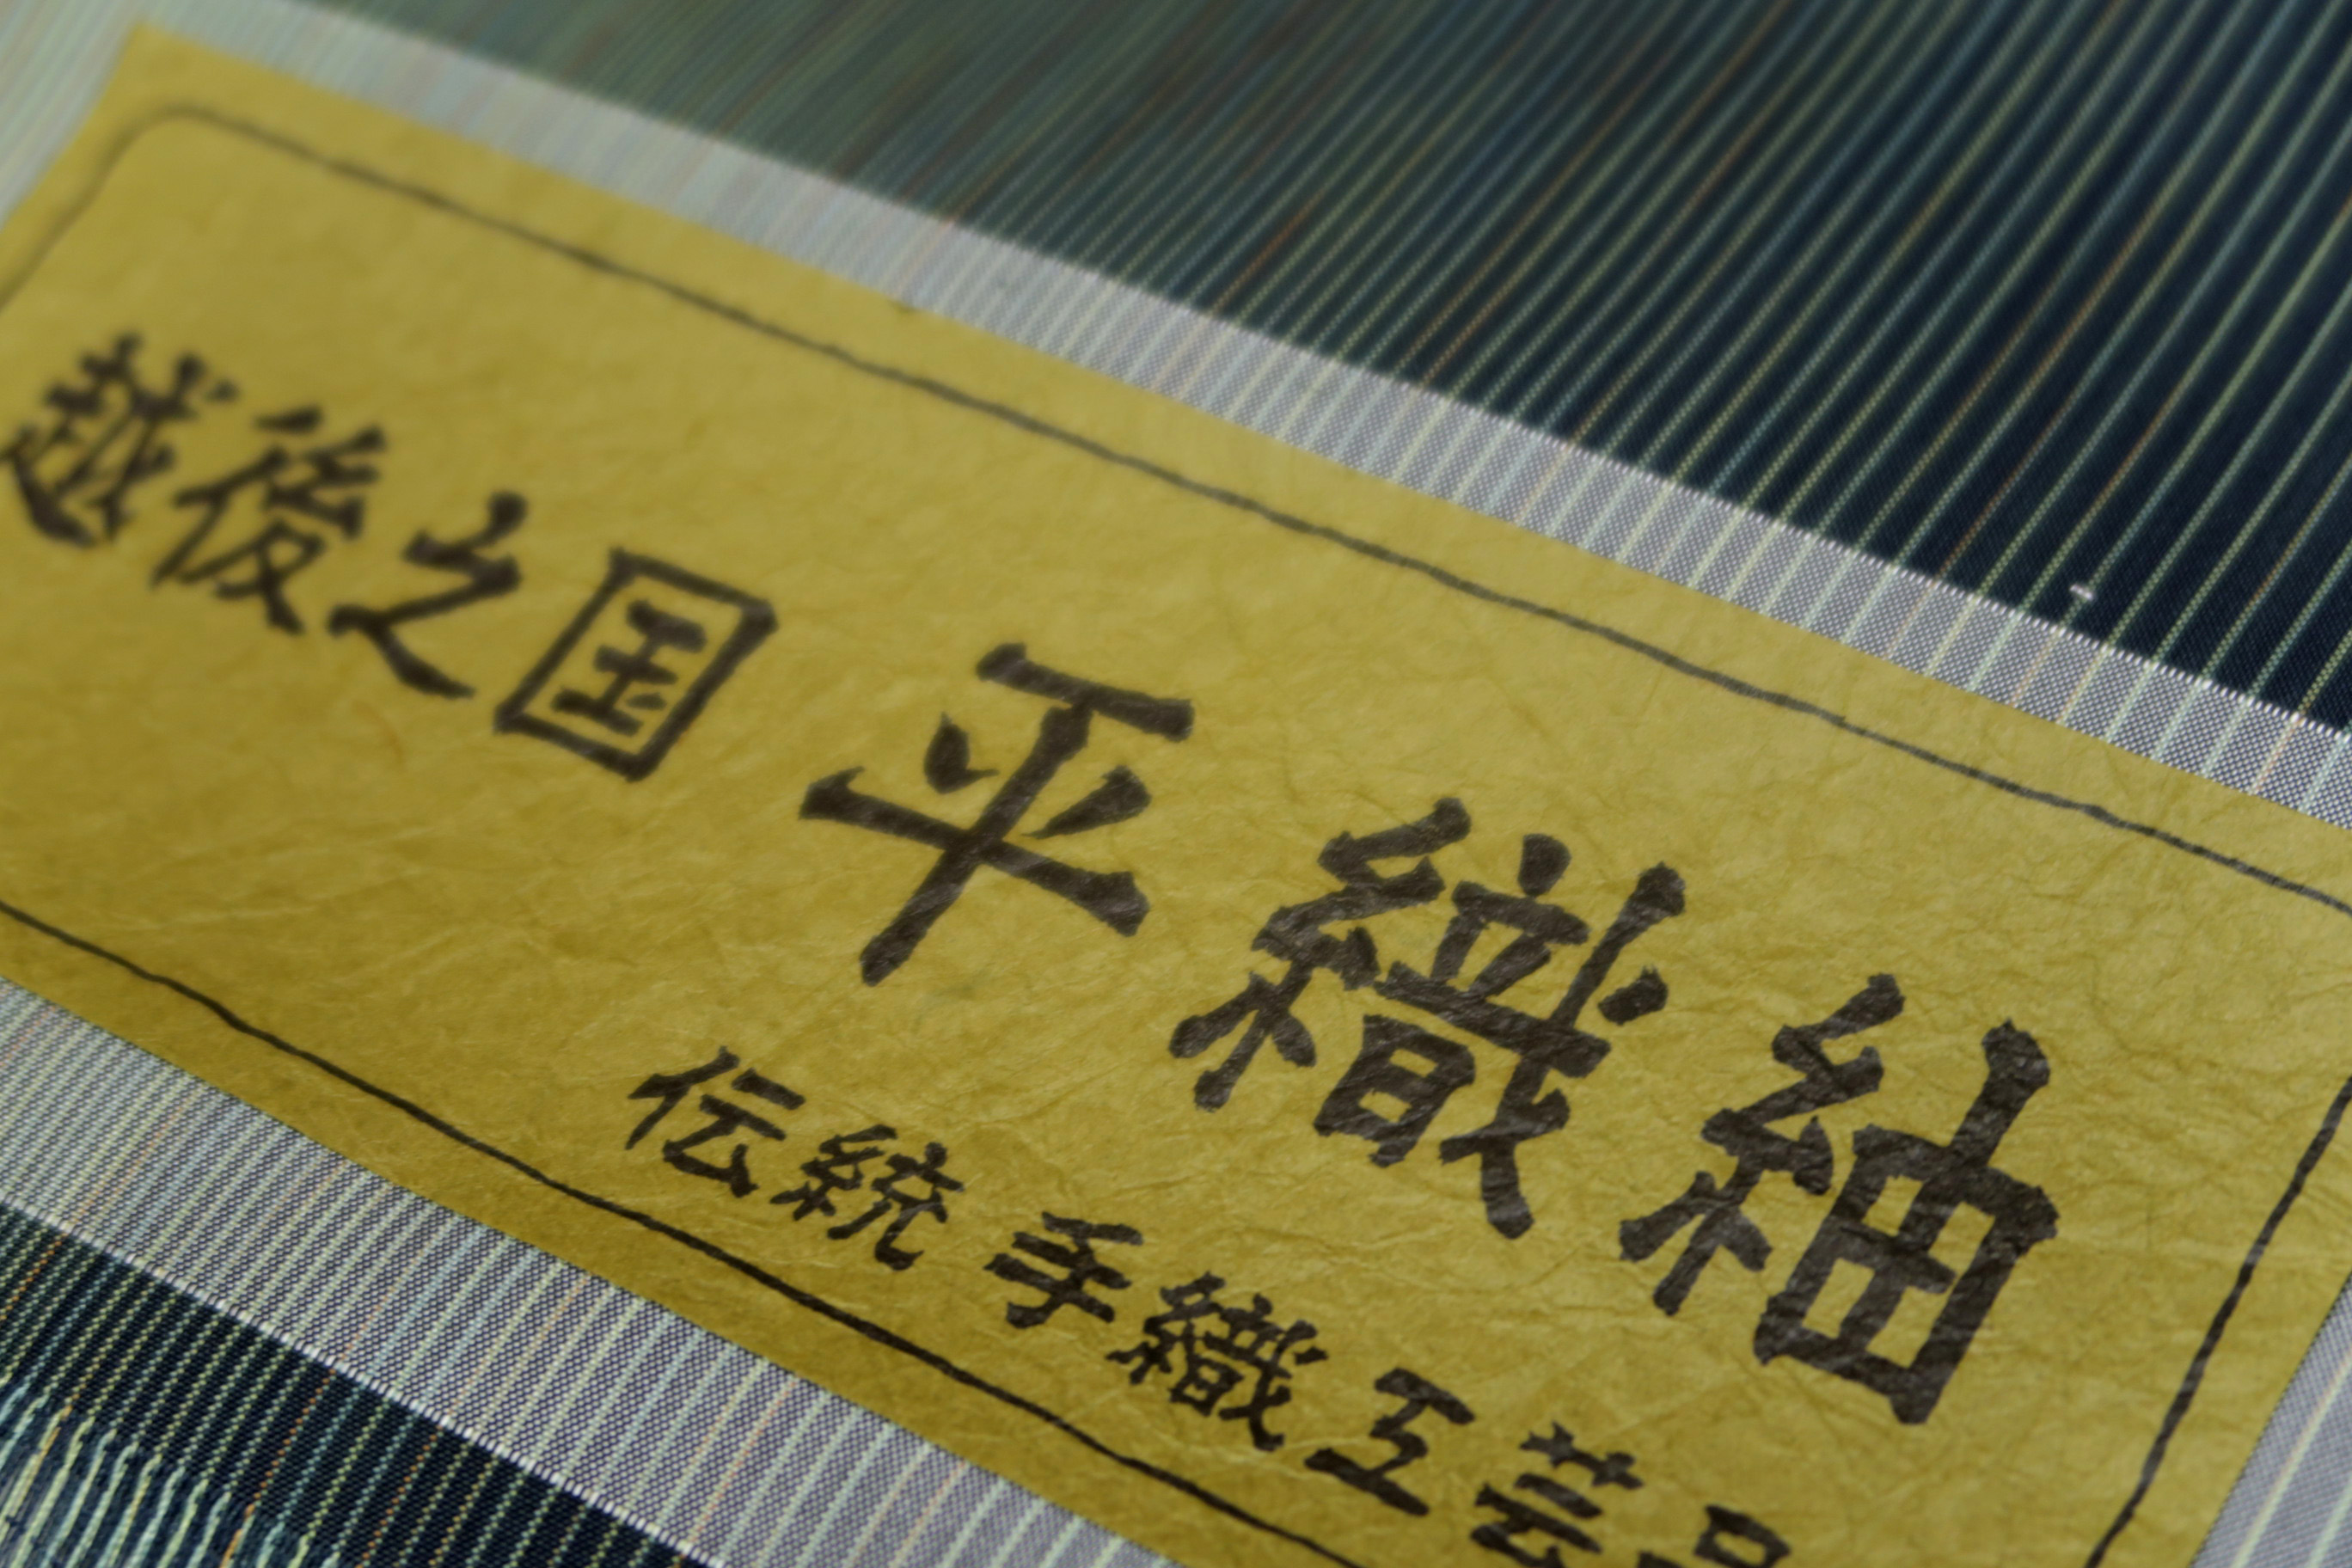 越後之国 平織紬
伝統手織工芸品